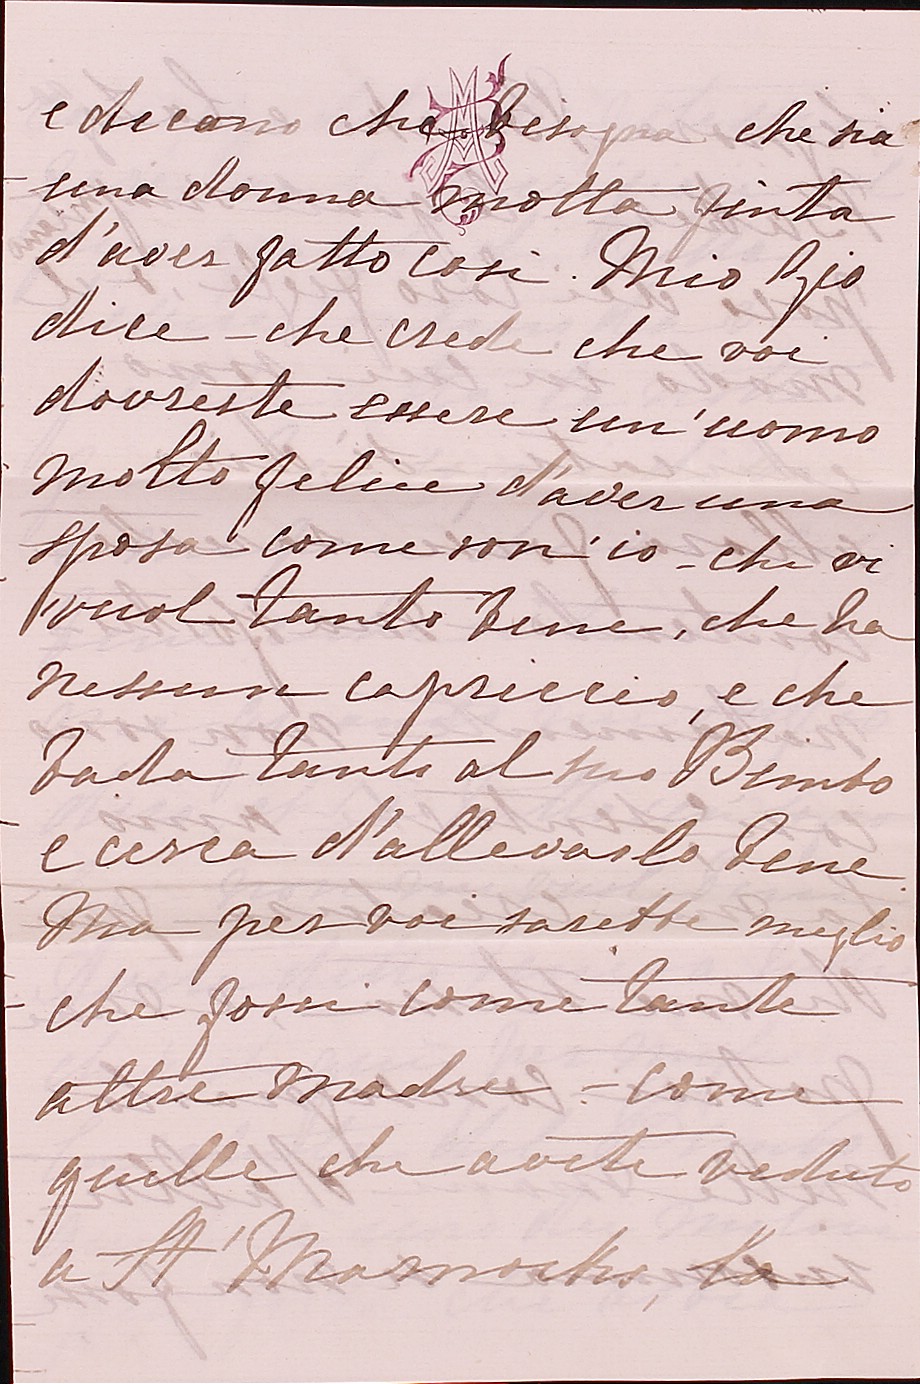 e dicano che bisogna che sia
una donna molta finta
d'aver fatto cosi. Mio Zio
dice - che crede che voi
dovreste essere un'uomo
molto felice d'aver una
sposa come son'io - che vi
vuol tanto bene, che ha
nessun capriccio, e che
bada tanto al suo Bimbo
e cerca d'allevarlo bene
Ma per voi sarebbe meglio
che fossi come tante
altre madre - come
quelle che avete veduto
a St' Marnocks, la